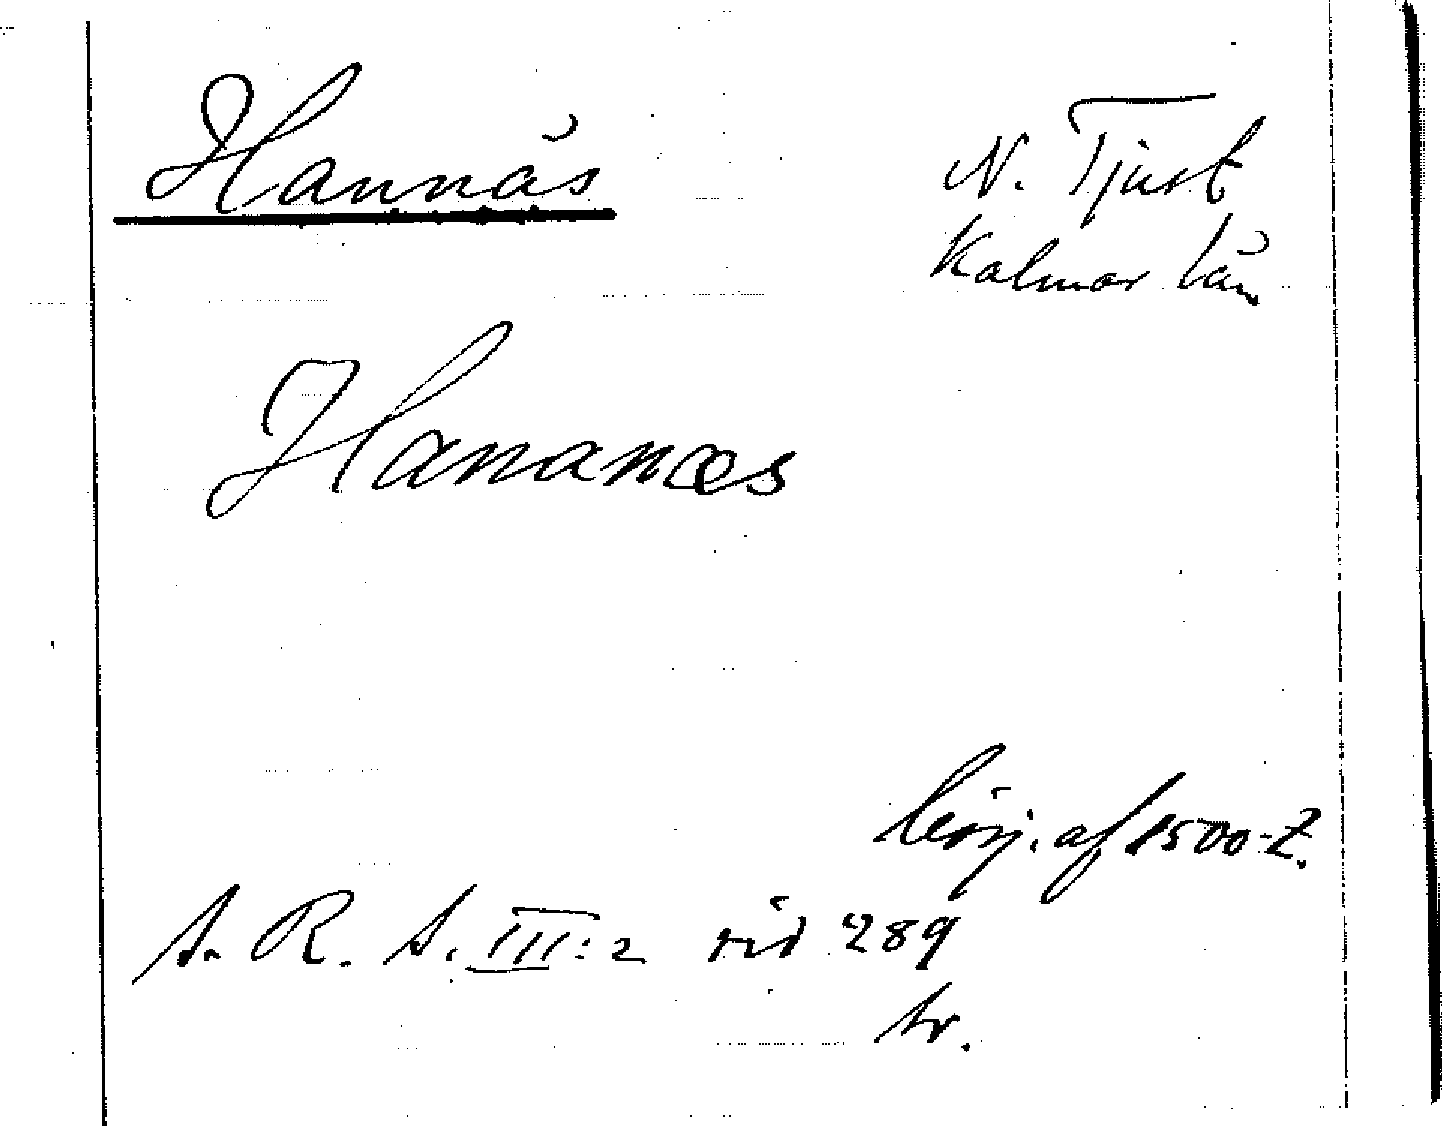 Hannäs
N. Tjust
Kalmar län
Hananæs
börj. af 1500-t.
S. R. S. III:2 sid 289
tr.